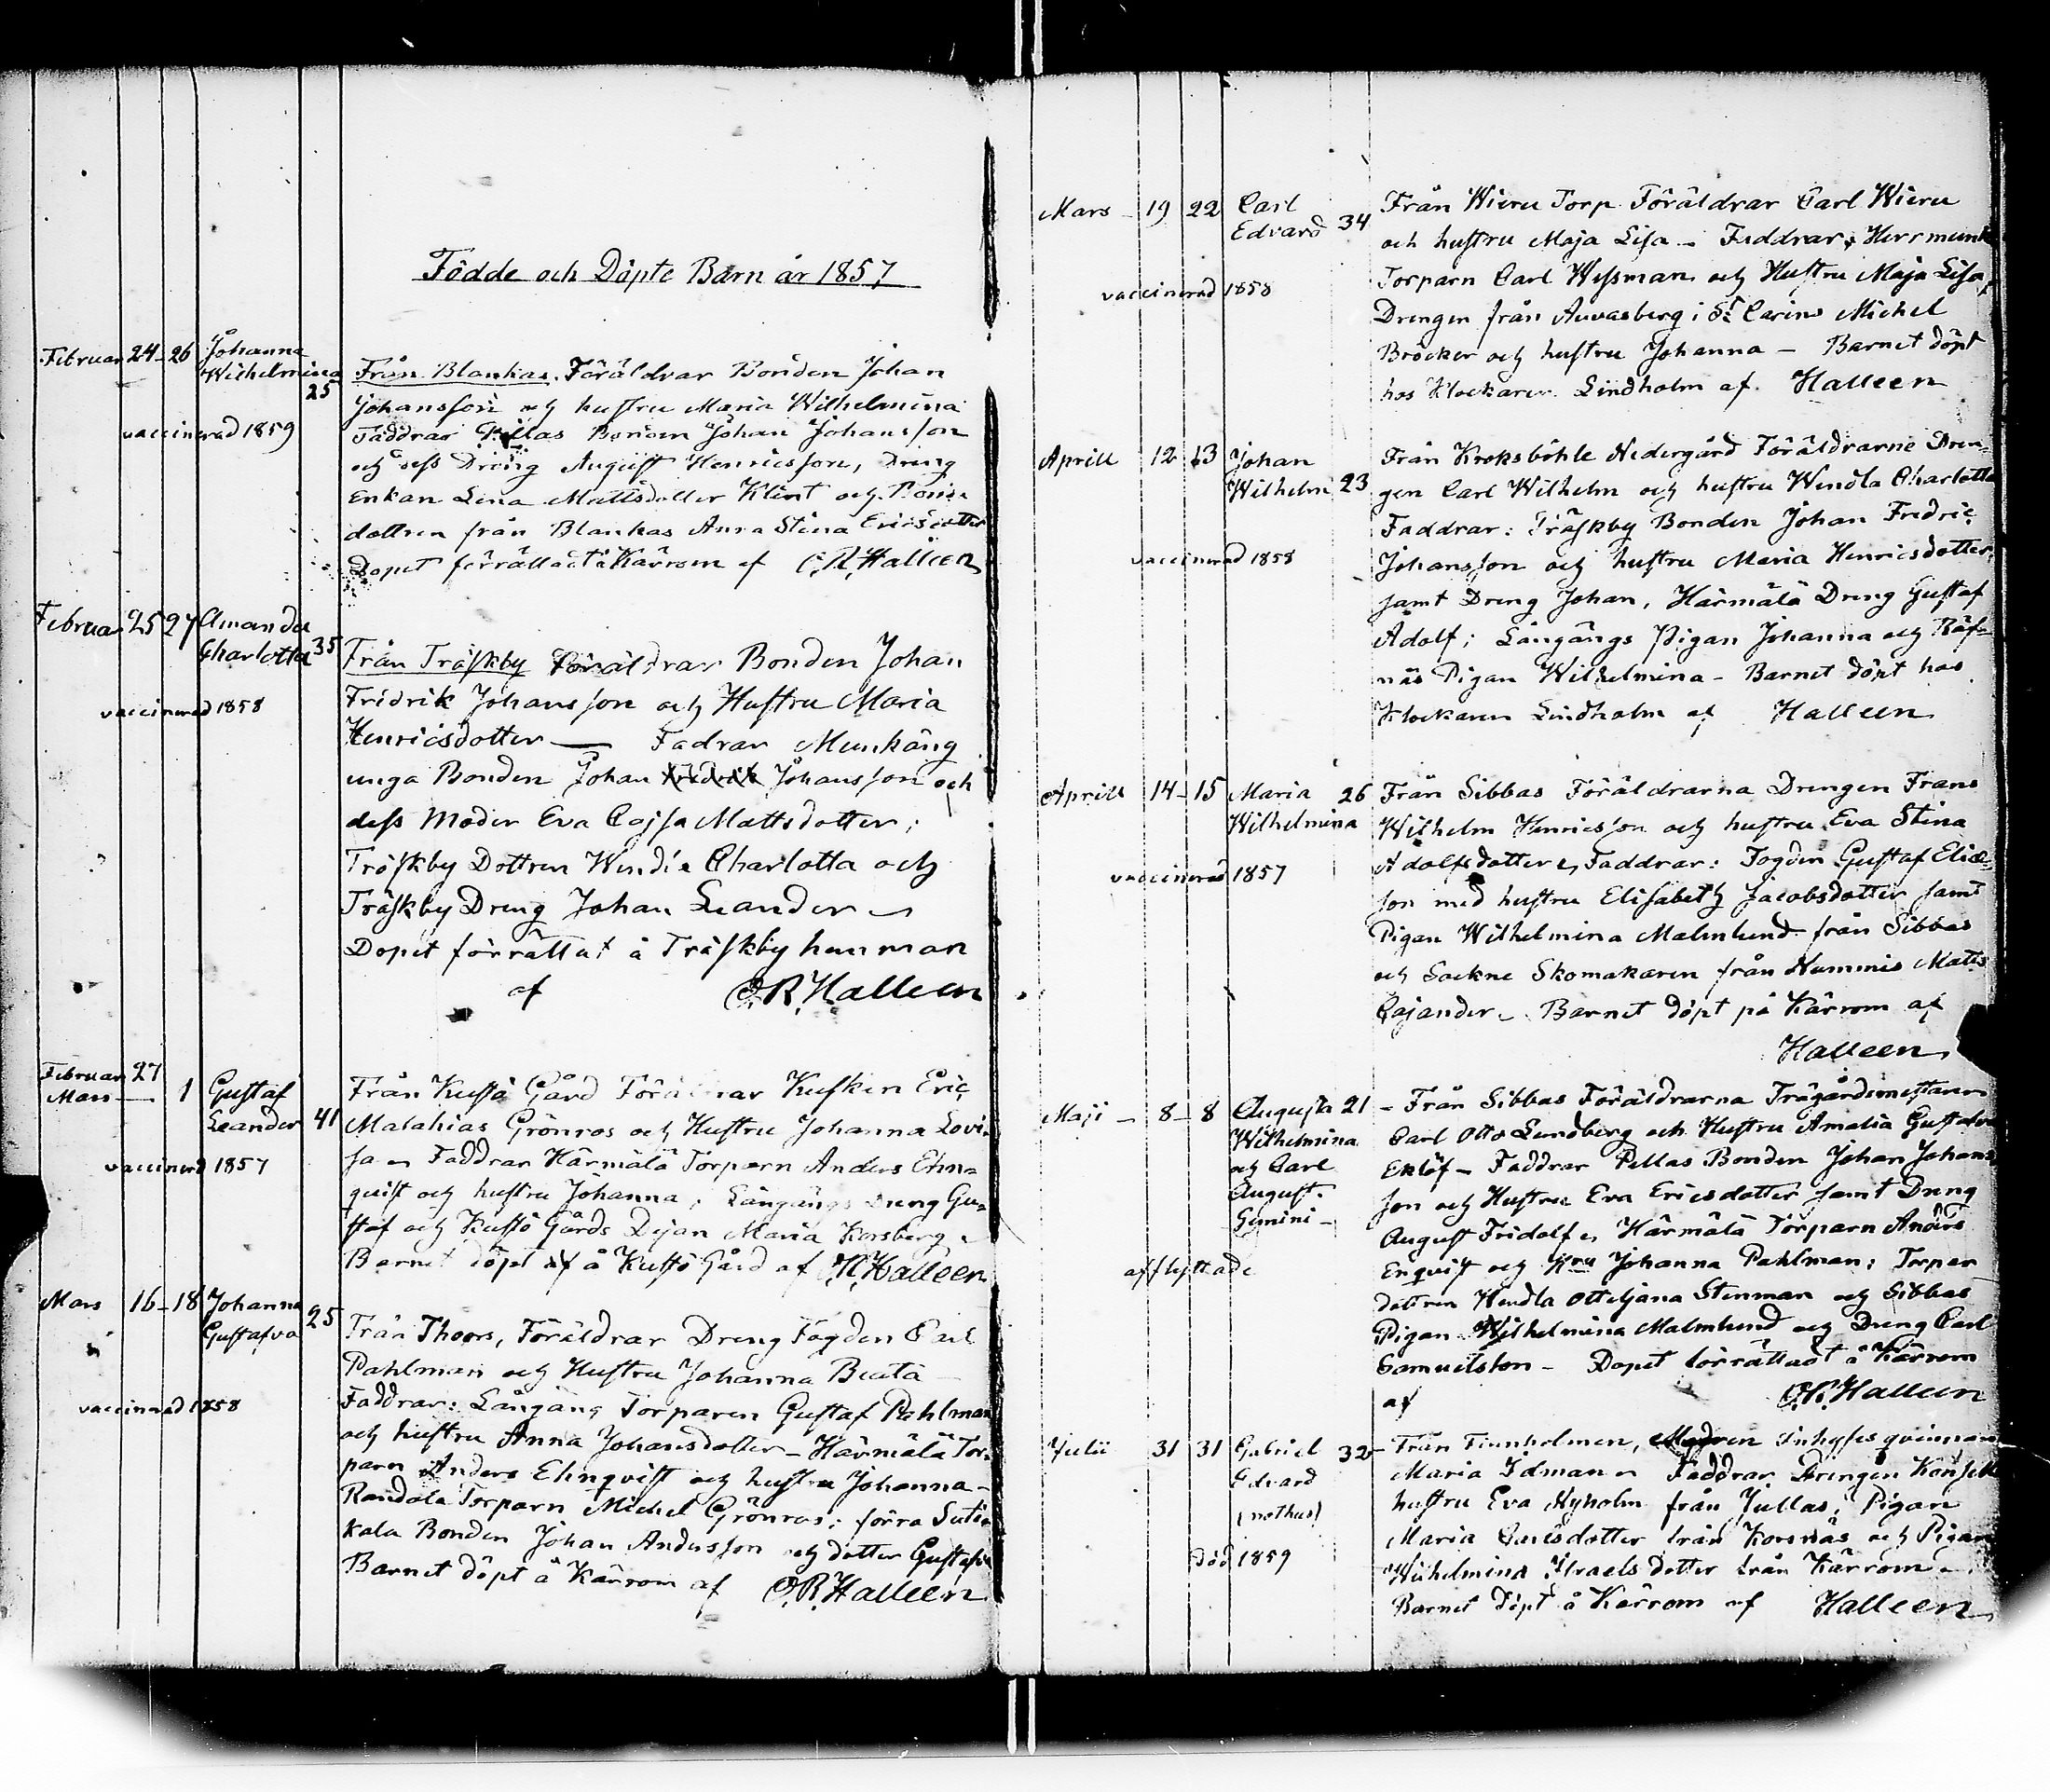 Födde och Döpte Barn år 1857
Februari 24-26 Johanna
Wilhelmina
25
vaccinerad 1859
Från Blankas. Föräldrar Bonden Johan
Johansson och hustru Maria Wilhelmina
Faddrar Pellas Bonden Johan Johansson
och dess Dräng August Henricsson, Dreng
Enkan Lena Mattsdotter Klint och Bonde
dottren från Blankas Anna Stina Ericsdotter
Dopet förrättadt å Kärrom af O.R. Halleen
Februari 25 27 Amanda
Charlotta 35
vaccinerad 1858
Från Träskby Föräldrar Bonden Johan
Fridrik Johansson och Hustru Maria
Henricsdotter — Fadrar Munkäng
unga Bonden Johan Fridrik Johansson och
dess Moder Eva Cajsa Mattsdotter;
Träskby Dottren Wendla Charlotta och
Träskby Dreng Johan Leander
Dopet förrättat å Träskby hemman
af O.R. Halleen
Februari 27
Mars — 1 Gustaf
Leander 41
vaccinerd 1857
Från Kustö Gård Föräldrar Kusken Eric
Malahias Grönros och Hustru Johanna Lovi-
sa Faddrar Härmälä Torparn Anders Ehn-
quist och hustru Johanna; Långängs Dreng Gu-
staf och Kustö Gårds Dejan Maria Korsberg
Barnet döpt å Kustö Gård af O.R. Halleen
Mars 16-18 Johanna
Gustafva 25
vaccinerad 1858
Från Thoors, Föräldrar Dreng Fogden Carl
Pahlman och Hustru Johanna Beata
Faddrar: Långäng Torparen Gustaf Pahlman
och hustru Anna Johansdotter - Härmälä Tor-
parn Anders Ehnqvist och hustru Johanna -
Randala Torparn Michel Grönros; förra
kala Bonden Johan Andersson och dotter Gustafva
Barnet döpt å Kärrom af O.R. Halleen
Mars - 19 22 Carl
Edvard 34
vaccinerad 1858
Från Wieru Torp Föräldrar Carl Wieru
och hustru Maja Lisa - Faddrar
Torparn Carl Wessman och Hustru Maja Lisa,
Drengen från Auvasberg i St Carins Michel
Bröcker och hustru Johanna - Barnet döpt
hos Klockaren Lindholm af Halleen
Aprill 12 13 Johan
Wilhelm 23
vaccinerad 1858
Från Kroksböhle Nedergård Föräldrarne Dren-
gen Carl Wilhelm och hustru Wendla Charlotta
Faddrar: Träskby Bonden Johan Fredric
Johansson och hustru Maria Henricsdotter,
samt Dreng Johan, Härmälä Dreng Gustaf
Adolf; Långängs Pigan Johanna och Räf-
näs Pigan Wilhelmina - Barnet döpt hos
Klockaren Lindholm af Halleen
Aprill 14-15 Maria 26
Wilhelmina
vaccinerad 1857
Från Sibbas Föräldrarna Drengen Frans
Wilhelm Henricsson och hustru Eva Stina
Adolfsdotter, Faddrar: Fogden Gustaf Elias-
son med hustru Elisabeth Jacobsdotter samt
Pigan Wilhelmina Malmlund från Sibbas
och Sockne Skomakaren från Nummis Matts
Cajander. Barnet döpt på Kärrom af
Halleen
Maji - 8-8 Augusta 21
Wilhelmina
och Carl
August.
Gemini -
afflyttade
- Från Sibbas Föräldrarna Trägårdsmestaren
Carl Otto Lundberg och Hustru Amalia Gustafva
Eklöf - Faddrar Pellas Bonden Johan Johans-
son och Hustru Eva Ericsdotter samt Dreng
August Fridolf, Härmälä Torparn Anders
Enqvist och Hru Johanna Pahlman; Torpar
dottren Wendla Ottiljana Stenman och Sibbas
Pigan Wilhelmina Malmlund och Dreng Carl
Samuelsson - Dopet förrättadt å Kärrom
af O.R. Halleen
Julii 31 31 Gabriel 32
Edvard
(nothus)
död 1859
Från Finnholmen, Modren Inhyses qvinnan
Maria Idman Faddrar Drengen
hustru Eva Nyholm från Jullas; Pigan
Maria Carlsdotter från Korsnäs och Pigan
Wilhelmina Israels dotter från Kärrom
Barnet döpt å Kärrom af Halleen